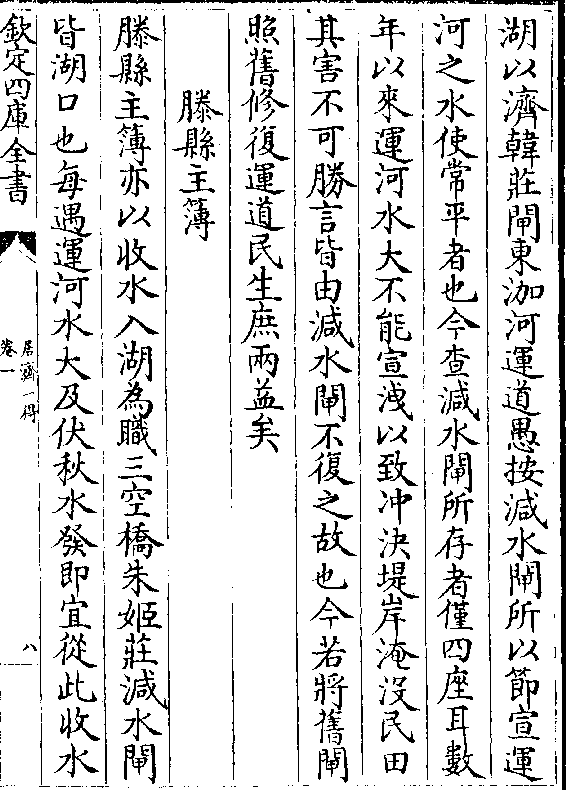 湖以濟韓莊閘東泇河運道愚按減水閘所以節宣運
河之水使常平者也今查減水閘所存者僅四座耳數
年以來運河水大不能宣洩以致冲決堤岸淹沒民田
其害不可勝言皆由減水閘不復之故也今若將舊閘
照舊修復運道民生庶兩益矣
滕縣主簿
滕縣主簿亦以收水入湖為職三空橋朱姬莊減水閘
皆湖口也每遇運河水大及伏秋水發即宜從此收水
欽定四庫全書
居濟一得
卷一
八